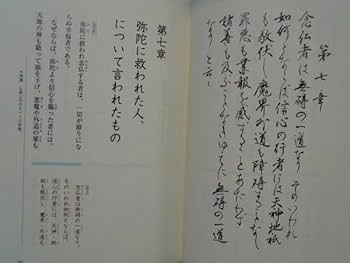 第七章
念仏者は無碍の一道なり そのいはれ
如何とならば信心の行者には天神地祇
も敬伏し魔界外道も障碍することなし
罪悪も業報を感ずることあたはず
諸善も及ぶことなきゆゑに無碍の一道
なりと云々
第七章
弥陀に救われた人、
について言われたもの
弥陀に救われ念仏する者は、一切が障りにな
らぬ幸福者である。
なぜならば、弥陀より信心を賜った者には、
天地の神も敬って頭を下げ、悪魔や外道の輩も
念仏者は無碍の一道なり。
そのいわれ如何とならば、
信心の行者には、天神・地
祇も敬伏し、魔界・外道も